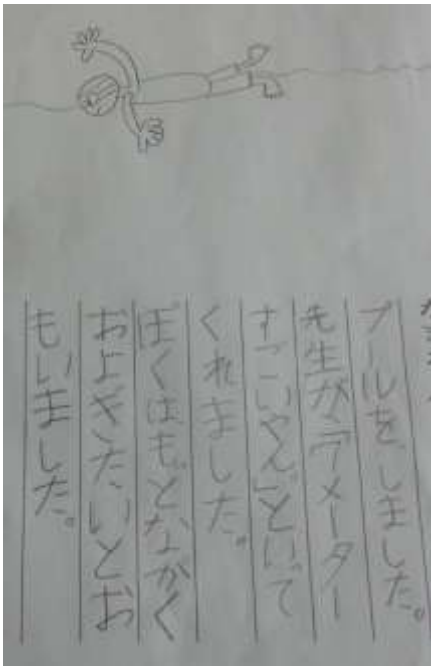 プールを、しました。
先生が、「7メーター
すごいやん」といって
くれました。
ぼくはもっとながく
およぎたいとお
もいました。